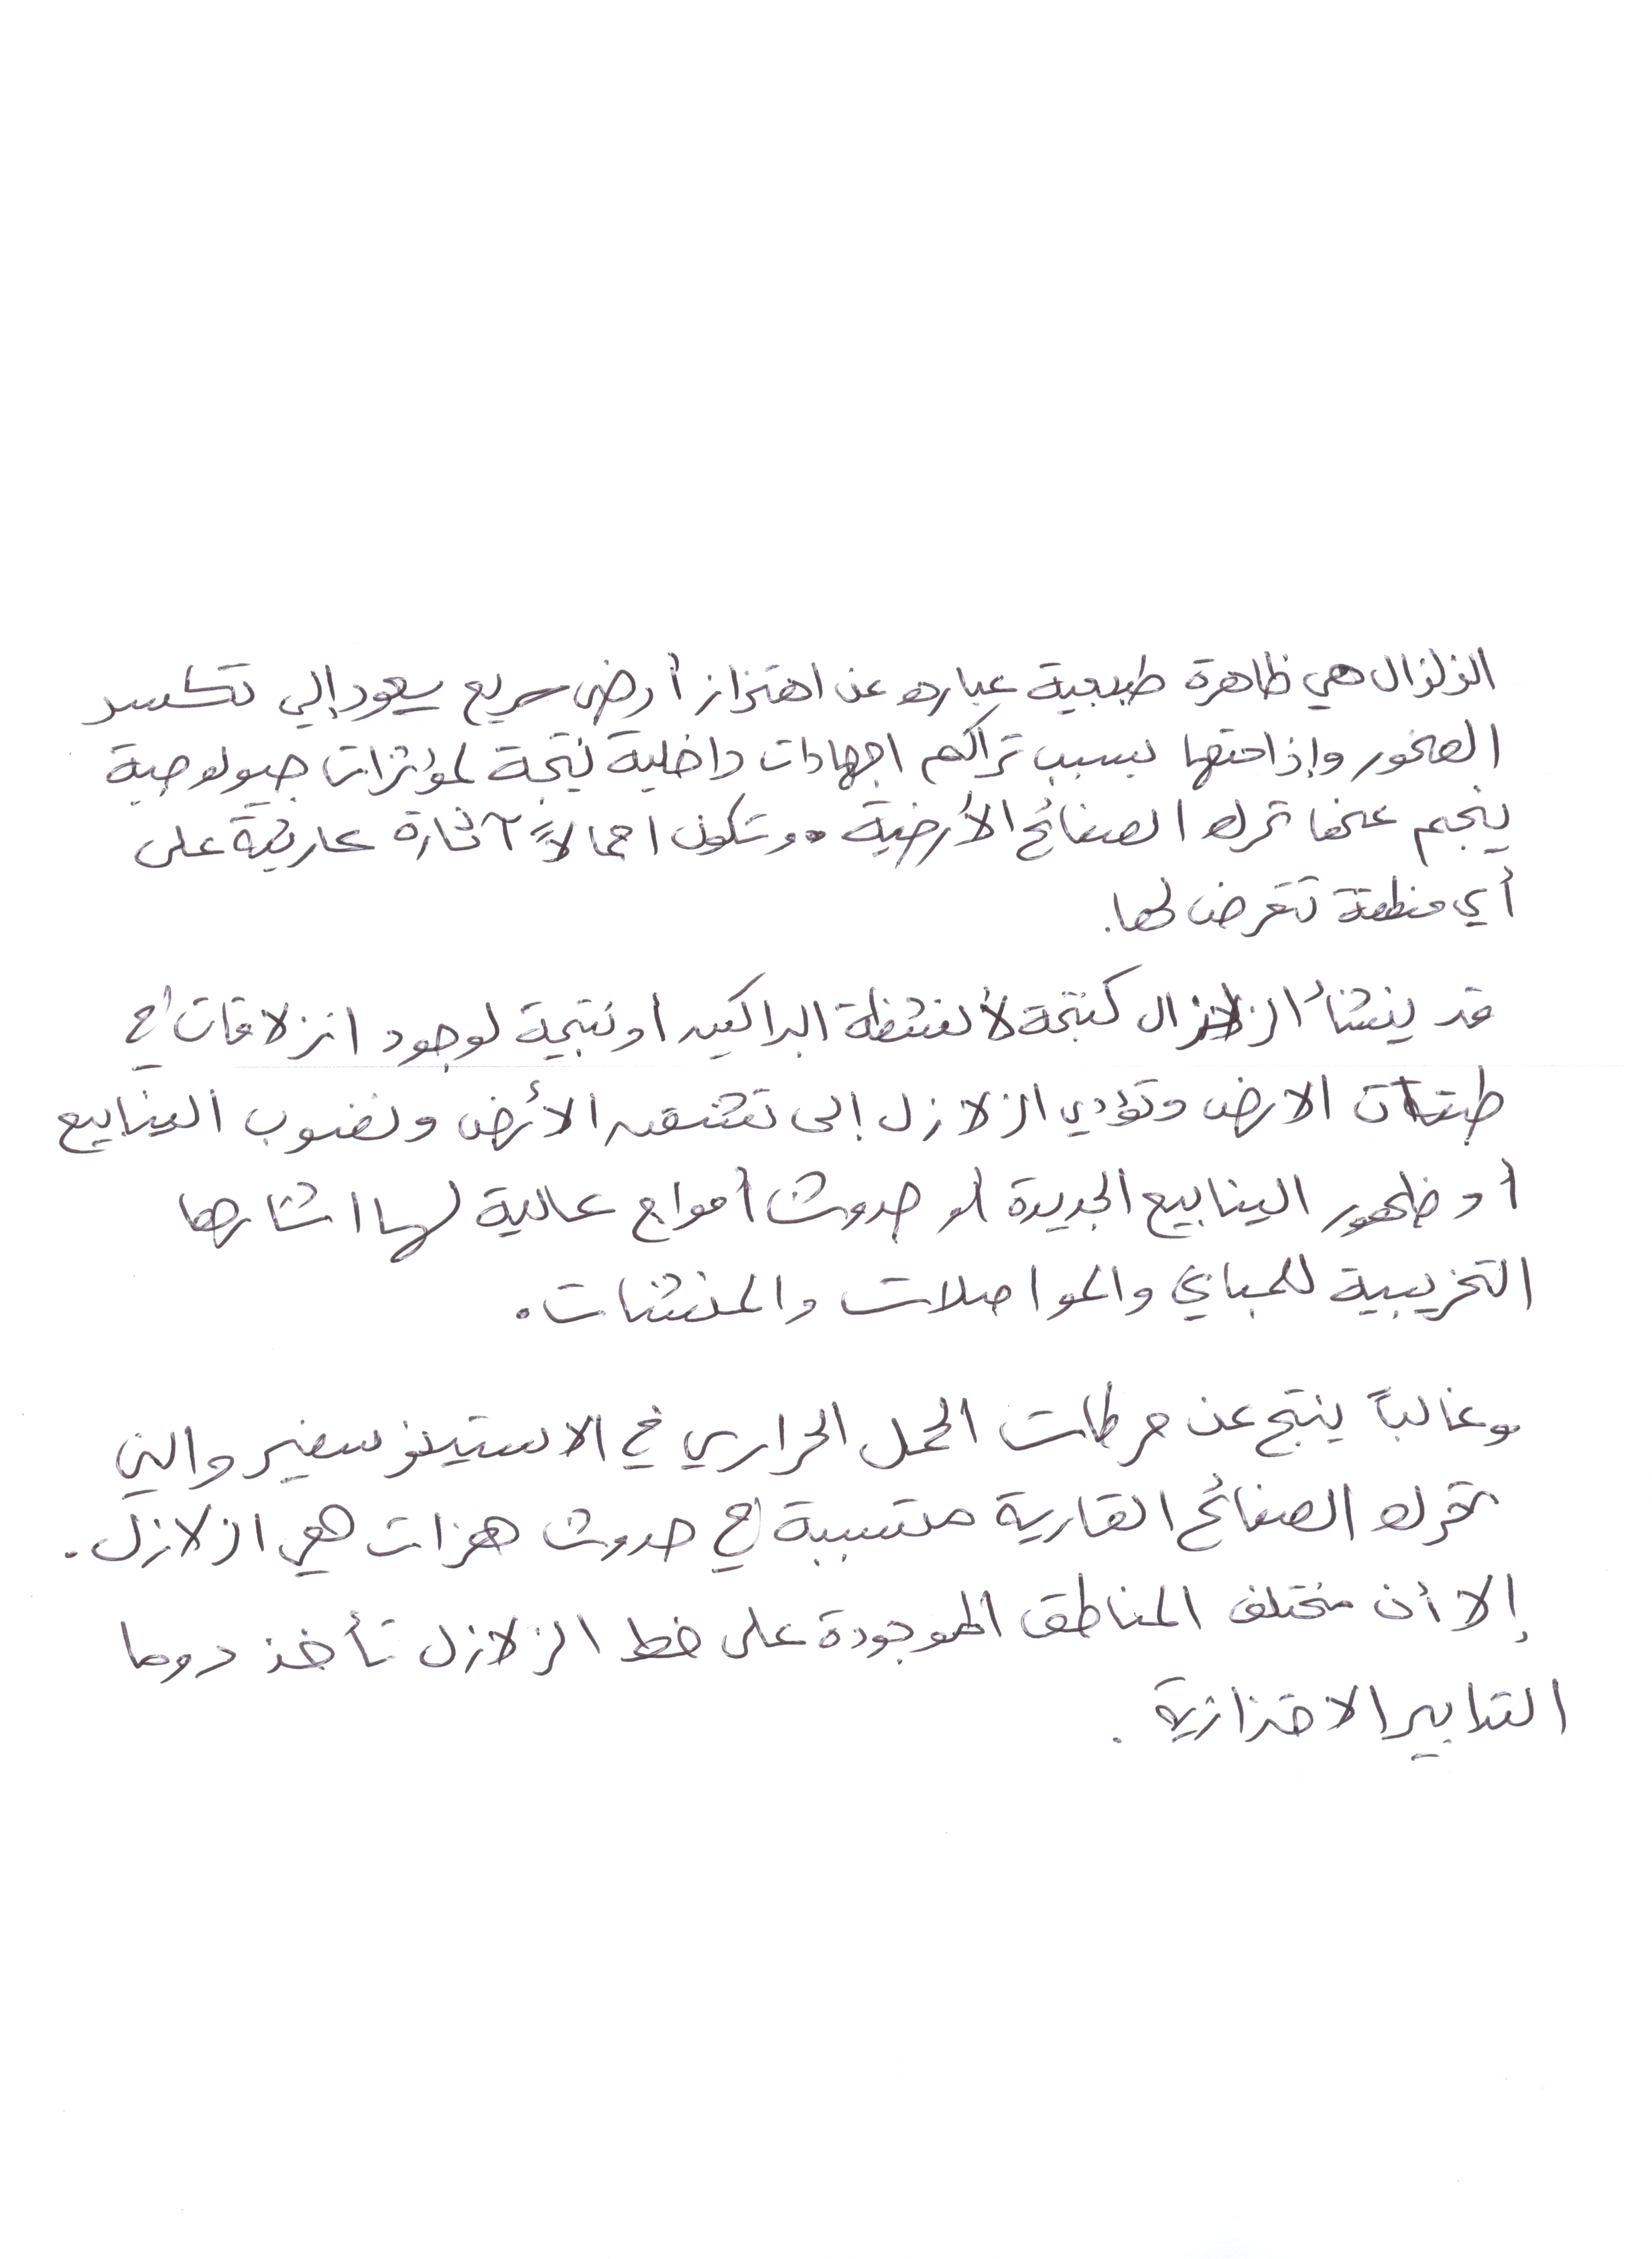 الزلزال هي ظاهرة طبيعية عباره عن اهتزاز أرضى سريع يعود إلي تكسر
الصخور وإزاحتها بسبب تراكم اجهادات داخلية نتيجة لمؤثرات جيولوجية
ينجم عنها تحرك الصفائح الأرضية. وتكون اجمالاً آثاره كارثية على
أي منطقة تتعرض لها.
قد ينشأ الزلازال كنتيجة لأنشطة البراكين او نتيجة لوجود انزلاقات في
طبقات الارض وتؤدي الزلازل إلى تشقق الأرض ونضوب الينابيع
أو ظهور الينابيع الجديدة أو حدوث أمواج عالية لها اثارها
التخريبية للمباني والمواصلات والمنشئات.
وغالباً ينتج عن حركات الحمل الحراري في الاستينوسفير والتي
تحرك الصفائح القارية متسببة في حدوث هزات هي الزلازل.
إلا أن مختلف المناطق الموجودة على خط الزلازل تأخذ دوما
التدابير الاحترازية.